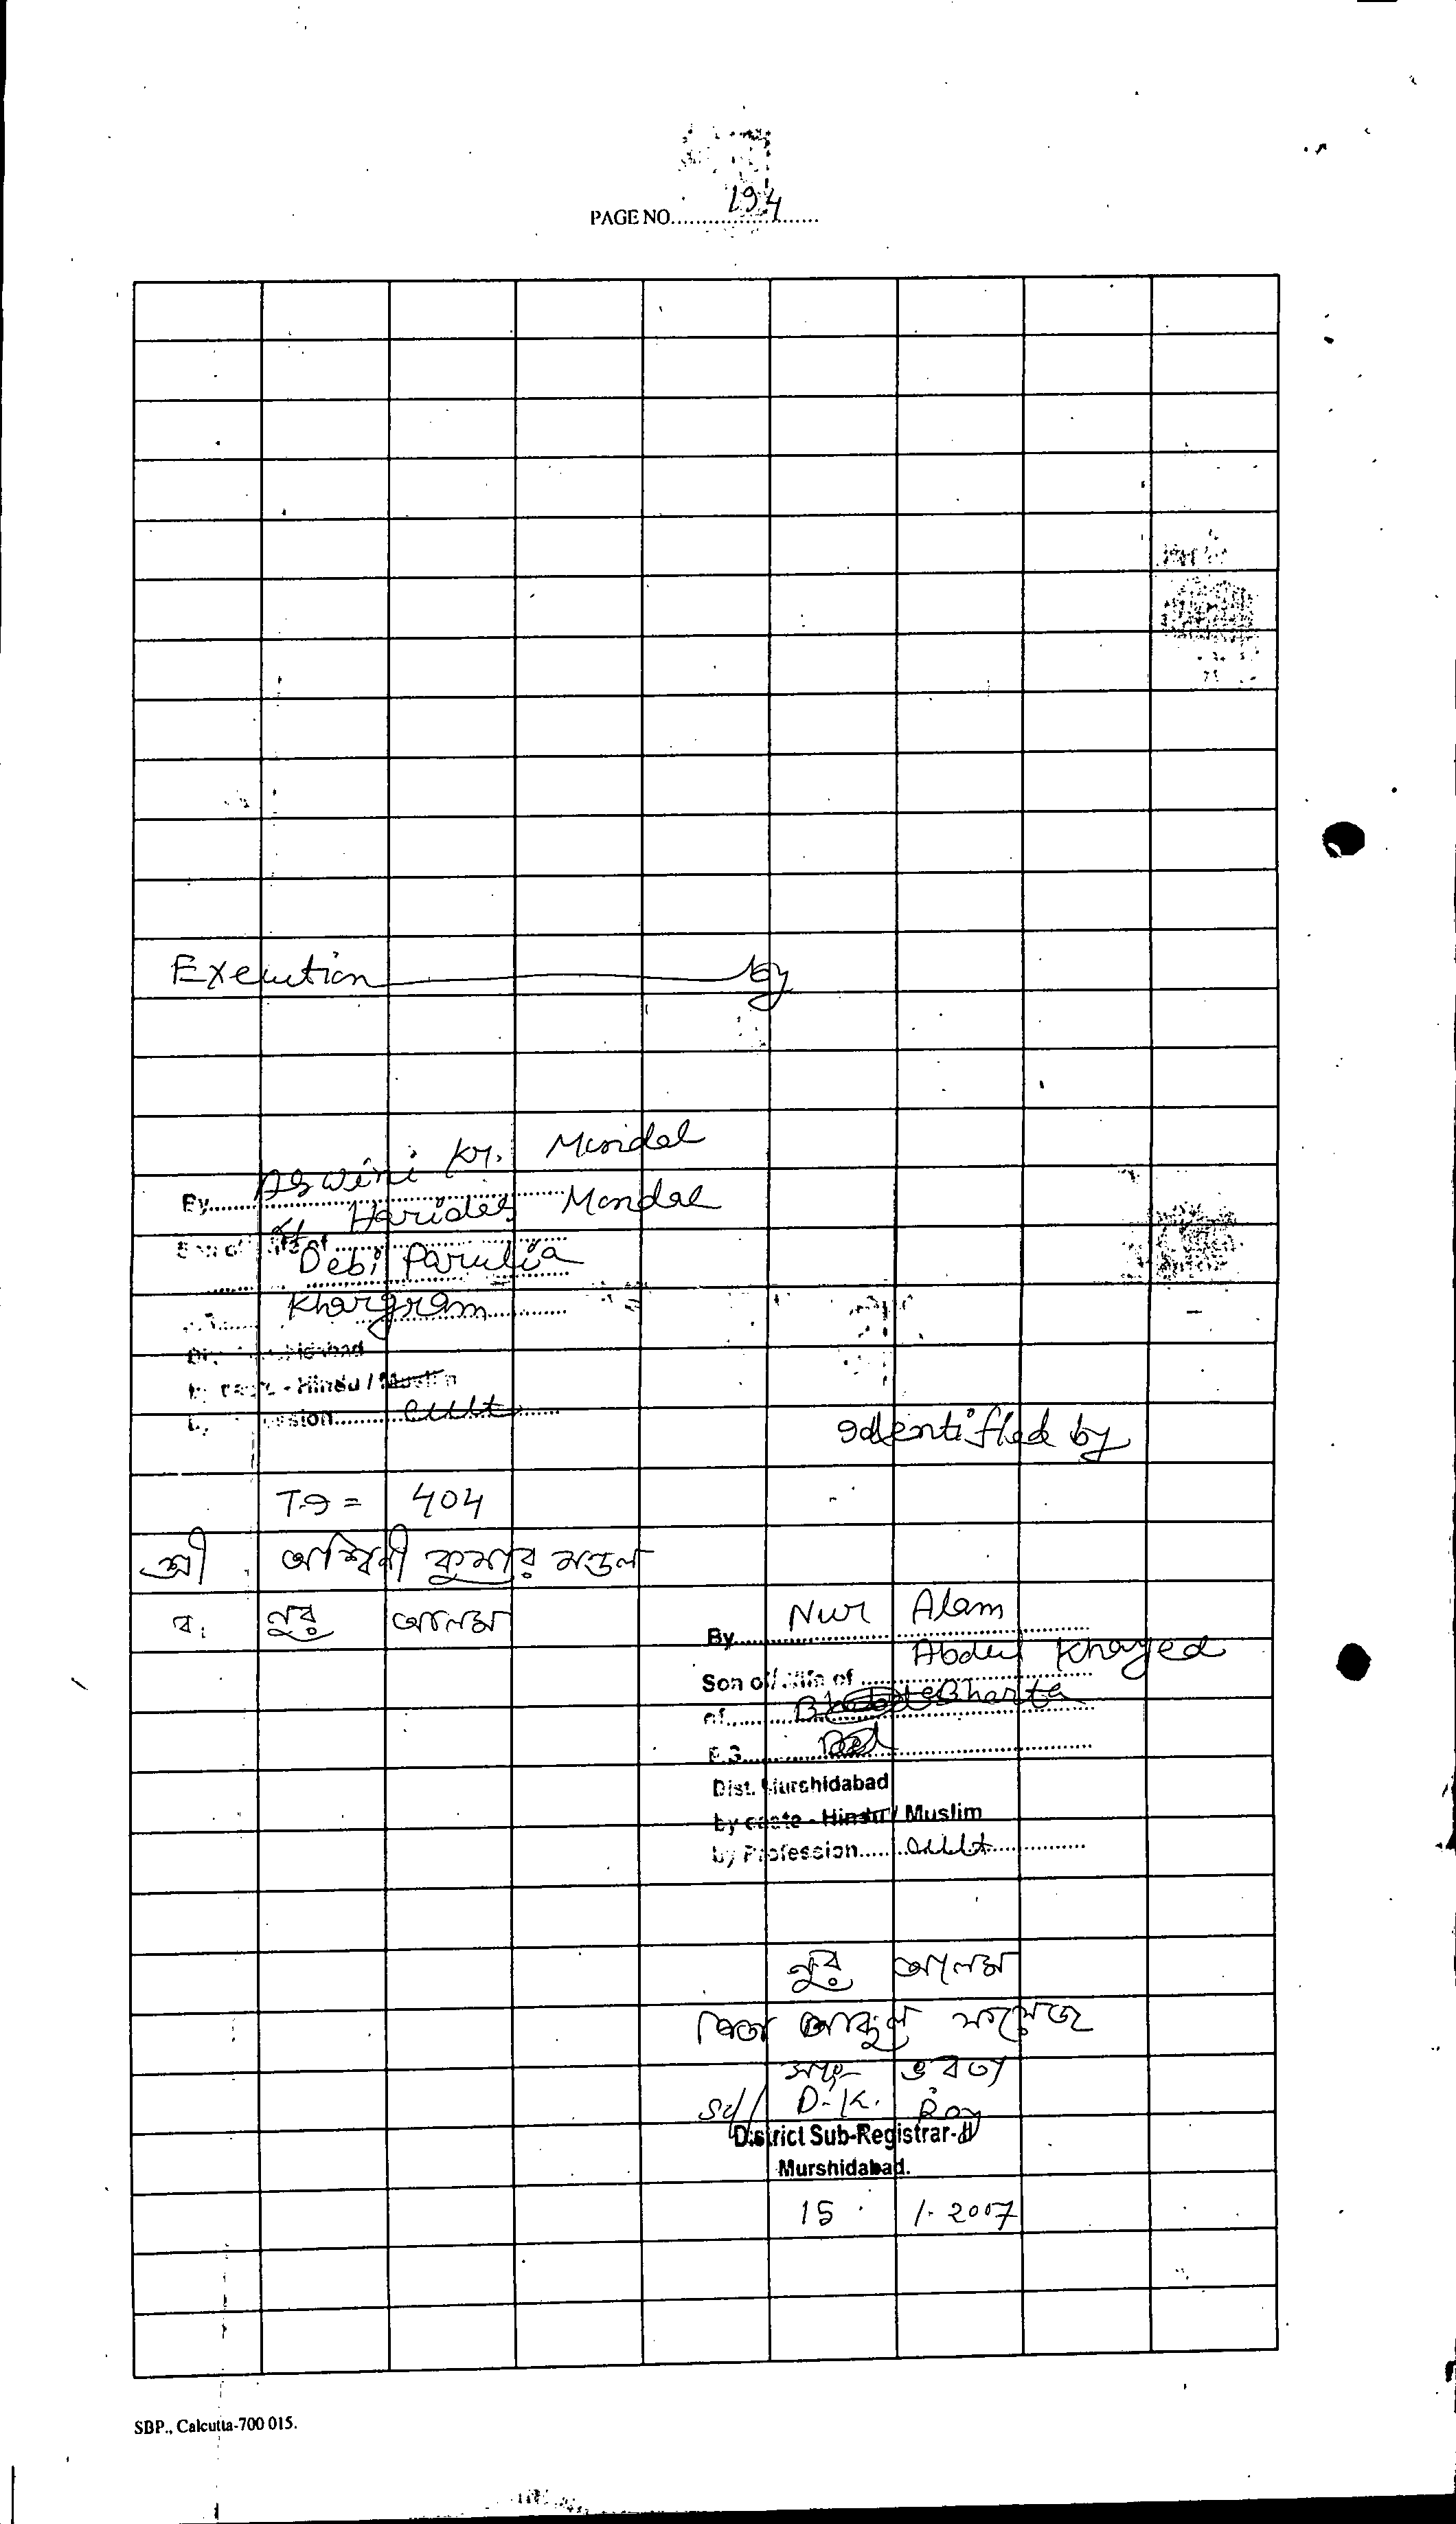 PAGE NO. 194
Execution by
By Aswini Kr. Mondal
Son of / Wife of Haridas Mondal
Debi Parulia
Khargram
Dist. Murshidabad
by caste - Hindu / Muslim
by Profession Cult
Identified by
T.I = 404
শ্রী অশ্বিনী কুমার মণ্ডল
ব: নুর আলম
By Nur Alam
Son of / Wife of Abdul Khayed
of Bharta
P.S.
Dist. Murshidabad
by caste - Hindu / Muslim
by Profession Cult
নুর আলম
পিতা আব্দুল
সাং ভরতা
Sd/ D.K. Roy
District Sub-Registrar-II
Murshidabad.
15 . 1. 2007
SBP., Calcutta-700 015.